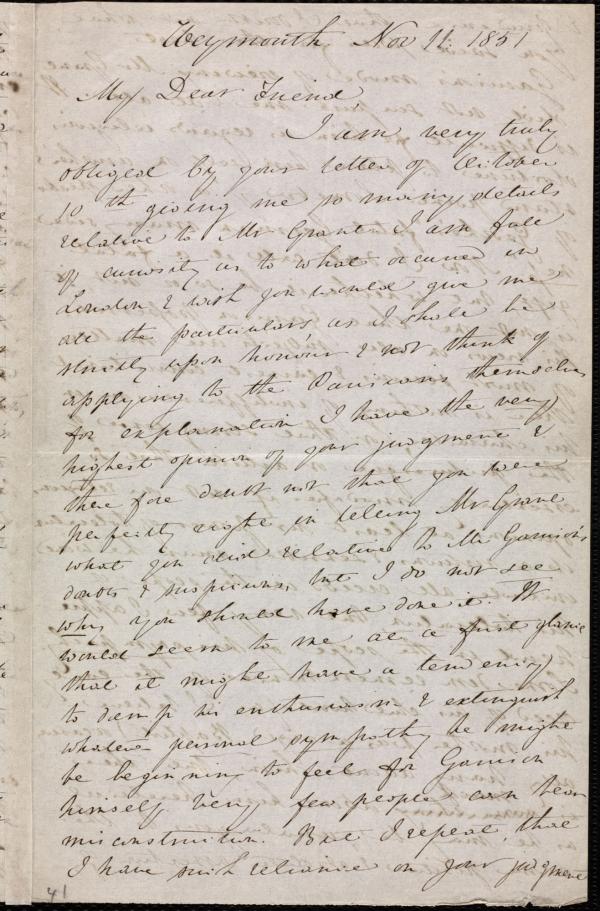 Weymouth Nov 11. 1851
My Dear Friend,
I am very truly
obliged by your letter of October
10 th giving me so many details
relative to Mr Grant. I am full
of curiosity as to what occured in
London & wish you would give me
all the particulars as I shall be
strictly upon honour & not think of
applying to the Parisians themselves
for explanation I have the very
highest opinion of your judgment &
there fore doubt not that you were
perfectly right in telling Mr Grant
what you did relative to Mr Garrison's
doubts & suspicions, but I do not see
why you should have done it. It
would seem to me at a first glance
that it might have a tendency
to damp his enthusiasm & extinguish
whatever personal sympathy he might
be beginning to feel for Garrison
himself, very few people can bear
misconstruction. But I repeat, that
I have such reliance on your judgment
41